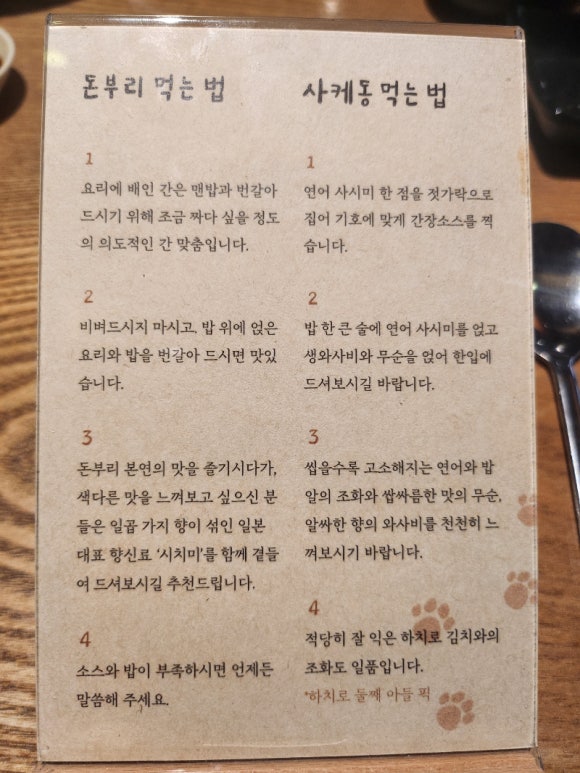 돈부리 먹는 법
1
요리에 배인 간은 맨밥과 번갈아
드시기 위해 조금 짜다 싶을 정도
의 의도적인 간 맞춤입니다.
2
비벼드시지 마시고, 밥 위에 얹은
요리와 밥을 번갈아 드시면 맛있
습니다.
3
돈부리 본연의 맛을 즐기시다가,
색다른 맛을 느껴보고 싶으신 분
들은 일곱 가지 향이 섞인 일본
대표 향신료 ‘시치미’를 함께 곁들
여 드셔보시길 추천드립니다.
4
소스와 밥이 부족하시면 언제든
말씀해 주세요.
사케동 먹는 법
1
연어 사시미 한 점을 젓가락으로
집어 기호에 맞게 간장소스를 찍
습니다.
2
밥 한 큰 술에 연어 사시미를 얹고
생와사비와 무순을 얹어 한입에
드셔보시길 바랍니다.
3
씹을수록 고소해지는 연어와 밥
알의 조화와 쌉싸름한 맛의 무순,
알싸한 향의 와사비를 천천히 느
껴보시기 바랍니다.
4
적당히 잘 익은 하치로 김치와의
조화도 일품입니다.
*하치로 둘째 아들 픽